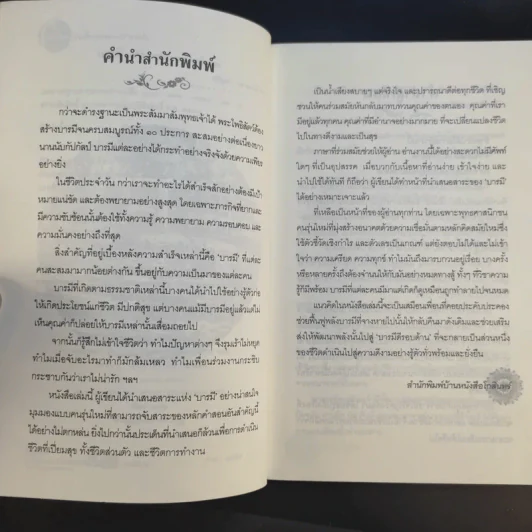 คำนำสำนักพิมพ์
กว่าจะดำรงฐานะเป็นพระสัมมาสัมพุทธเจ้าได้ พระโพธิสัตว์ต้อง
สร้างบารมีจนครบสมบูรณ์ทั้ง ๑๐ ประการ สะสมอย่างต่อเนื่อง
นานนับกัปกัลป์ บารมีแต่ละอย่างได้กระทำอย่างจริงจังด้วยความเพียร
อย่างยิ่ง
ในชีวิตประจำวัน กว่าเราจะทำอะไรได้สำเร็จสักอย่างต้องมีเป้า
หมายแน่ชัด และต้องพยายามอย่างสูงสุด โดยเฉพาะภารกิจที่ยากและ
มีความซับซ้อนนั้นต้องใช้ทั้งความรู้ ความพยายาม ความรอบคอบ และ
ความมั่นคงอย่างถึงที่สุด
สิ่งสำคัญที่อยู่เบื้องหลังความสำเร็จเหล่านี้คือ 'บารมี' ที่แต่ละ
คนสะสมมามากน้อยต่างกัน ขึ้นอยู่กับความเป็นมาของแต่ละคน
บารมีที่เกิดตามธรรมชาติเหล่านี้บางคนได้นำไปใช้อย่างรู้ตัวก่อ
ให้เกิดประโยชน์แก่ชีวิต มีปกติสุข แต่บางคนแม้มีบารมีอยู่แล้วแต่ไม่
เห็นคุณค่าก็ปล่อยให้บารมีเหล่านั้นเสื่อมถอยไป
จากนั้นก็รู้สึกไม่เข้าใจชีวิตว่า ทำไมปัญหาต่างๆ จึงรุมเร้าไม่หยุด
ทำไมเมื่อจับอะไรมาทำก็มักล้มเหลว ทำไมเพื่อนร่วมงานกระซิบ
กระซาบกันว่าเราไม่น่ารัก ฯลฯ
หนังสือเล่มนี้ ผู้เขียนได้นำเสนอสาระแห่ง 'บารมี' อย่างน่าสนใจ
มุมมองแบบคนรุ่นใหม่ที่สามารถจับสาระของหลักคำสอนอันสำคัญนี้
ได้อย่างไม่ตกหล่น ยิ่งไปกว่านั้นประเด็นที่นำเสนอก็ล้วนเพื่อการดำเนิน
ชีวิตที่เปี่ยมสุข ทั้งชีวิตส่วนตัว และชีวิตการทำงาน
เป็นน้ำเสียงสบายๆ แต่จริงใจ และปรารถนาดีต่อทุกชีวิต ที่เชิญ
ชวนให้คนร่วมสมัยหันกลับมาทบทวนคุณค่าของตนเอง คุณค่าที่เรา
มีอยู่แล้วทุกคน คุณค่าที่มีอำนาจอย่างมากมาย ที่จะเปลี่ยนแปลงชีวิต
ไปในทางดีงามและเป็นสุข
ภาษาที่ร่วมสมัยช่วยให้ผู้อ่าน อ่านงานนี้ได้อย่างสะดวกไม่มีศัพท์
ใดๆ ที่เป็นอุปสรรค เมื่อบวกกับเนื้อหาที่อ่านง่าย เข้าใจง่าย และ
นำไปใช้ได้ทันที ก็ถือว่า ผู้เขียนได้ทำหน้าที่นำเสนอสาระของ 'บารมี'
ได้อย่างเหมาะเจาะแล้ว
ที่เหลือเป็นหน้าที่ของผู้อ่านทุกท่าน โดยเฉพาะพุทธศาสนิกชน
คนรุ่นใหม่ที่มุ่งสร้างอนาคตด้วยความเชื่อมั่นตามหลักคิดสมัยใหม่ซึ่ง
ใช้ตัวชี้วัดเชิงกำไร และตัวเลขเป็นเกณฑ์ แต่ยังตอบไม่ได้และไม่เข้า
ใจว่า ความเครียด ความทุกข์ ทำไมมันถึงมารบกวนอยู่เรื่อย บางครั้ง
หรือหลายครั้งถึงต้องจำนนให้กับมันอย่างหมดทางสู้ ทั้งๆ ที่วิชาความ
รู้ก็มีพร้อม บารมีที่แต่ละคนมีมาแต่เกิดก็ดูเหมือนถูกทำลายไปจนหมด
แนวคิดในหนังสือเล่มนี้จะเป็นเสมือนเพื่อนที่คอยประคับประคอง
ช่วยฟื้นฟูพลังบารมีที่จางหายไปนั้นให้กลับคืนมาดังเดิมและช่วยเสริม
ส่งให้พัฒนาพลังนั้นไปสู่ 'บารมีดีรอบด้าน' ที่จะกลายเป็นส่วนหนึ่ง
ของชีวิตดำเนินไปสู่ความดีงามอย่างรู้ตัวทั่วพร้อมและยั่งยืน
สำนักพิมพ์บ้านหนังสือโกสินทร์